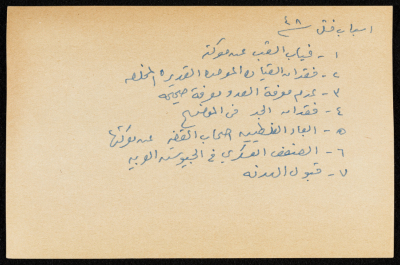 اسباب فشل ٤٨
١ - غياب الشعب عن معركته
٢ - فقدان القيادة الموحدة القديرة المخلصه
٣ - عدم معرفة العدو معرفة صحيحه
٤ - فقدان الجد في الموضوع
٥ - ابعاد الفلسطينيين اصحاب القضيه عن معركتها
٦ - الضعف العسكري في الجيوش العربيه
٧ - قبول الهدنه